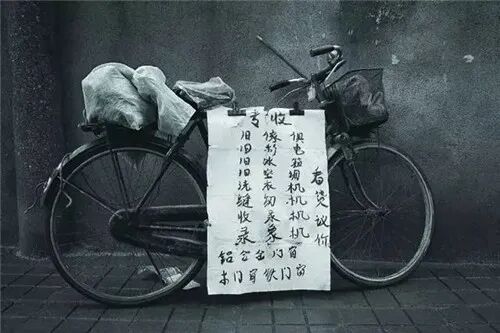 专收
旧傢俱
旧彩电
旧冰箱
旧空调
洗衣机
缝纫机
收录机
录象机
铝合金门窗
木门窗 铁门窗
看货议价